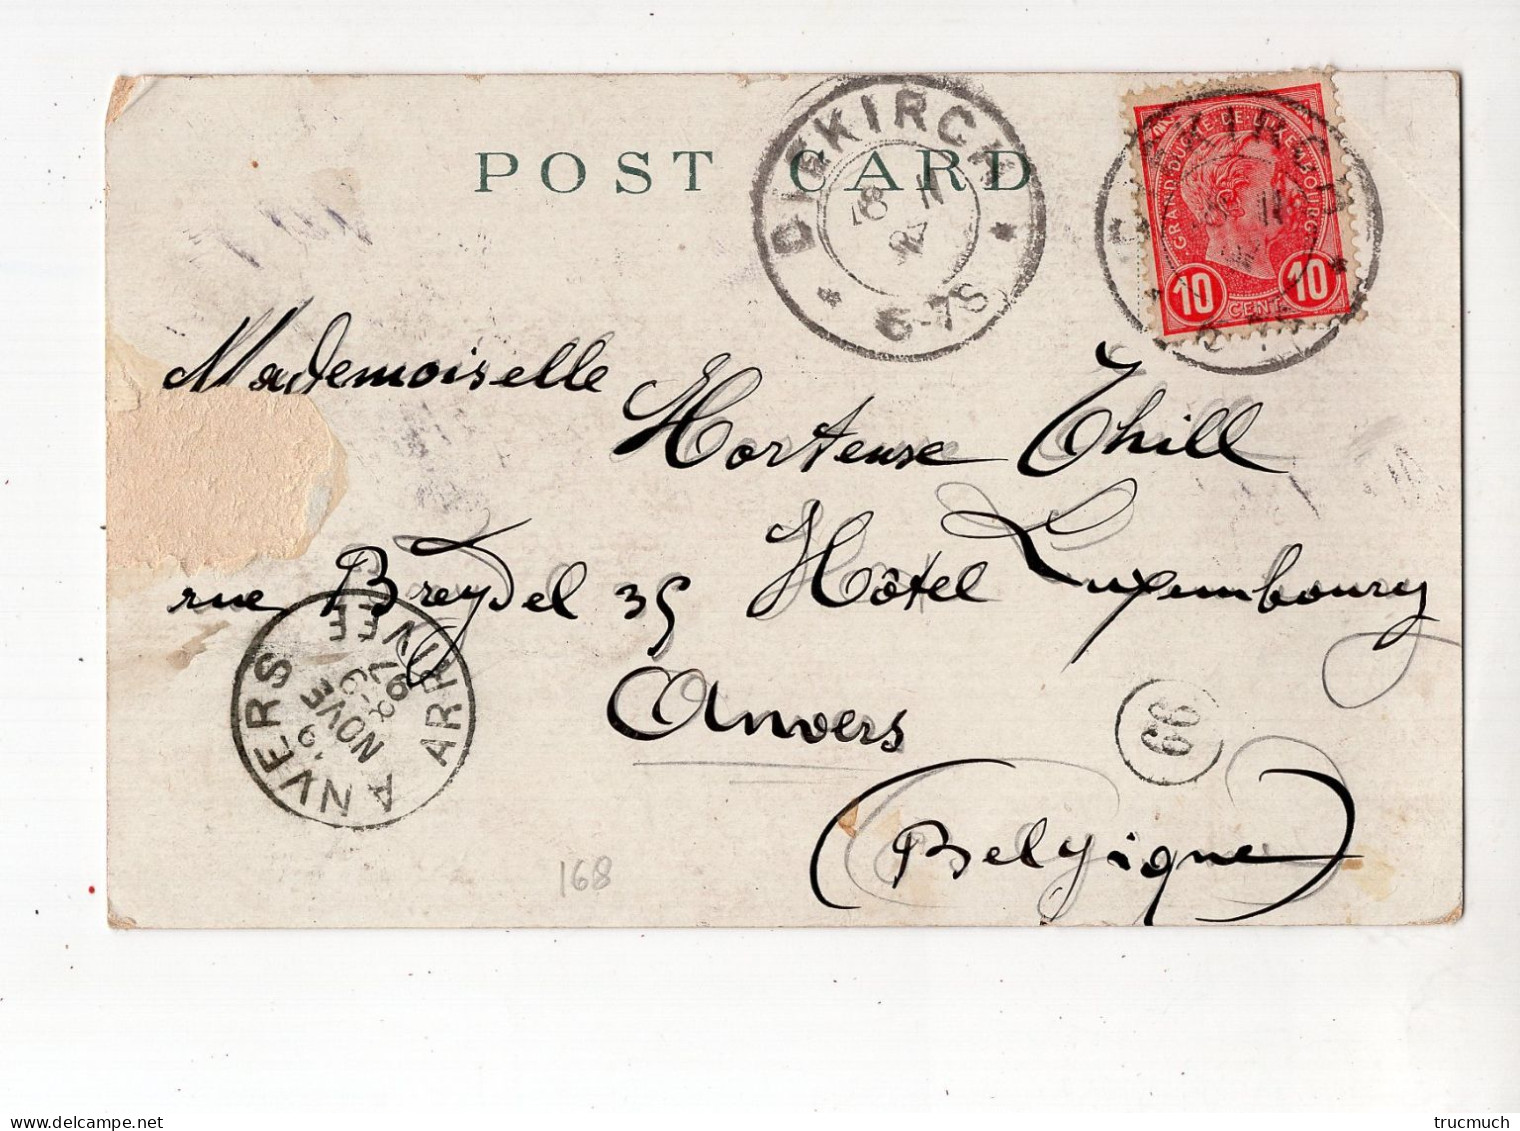 POST CARD
DIEKIRCH
18 11 97
6-7S
GRAND DUCHE DE LUXEMBOURG
10 CENT 10
Mademoiselle
Hortense Thill
rue Breydel 35 Hôtel Luxembourg
Anvers
(Belgique)
ANVERS
19 NOVE
8-9
97
ARRIVÉE
66
168
trucmuch